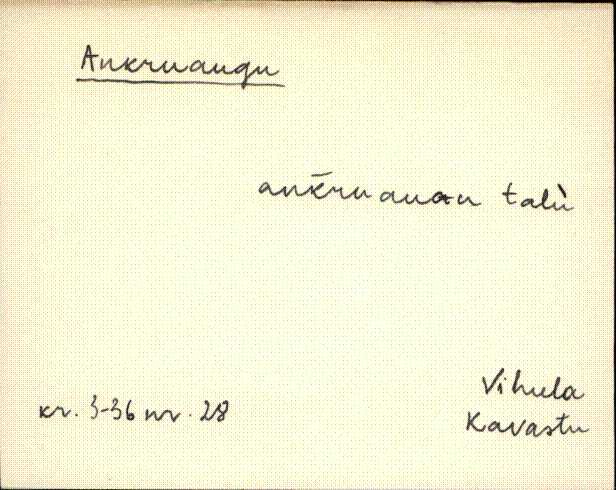 Ankruaugu
ankruauau talù
Vihula
kr. 3-36 nr. 28
Kavastu